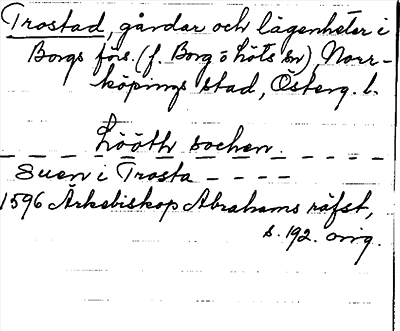 Trostad, gårdar och lägenheter i
Borgs förs. (f. Borg o Löts sn), Norr-
köpings stad, Österg. l.
Lööth sochen.
Suen i Trosta - - - -
1596 Ärkebiskop Abrahams räfst,
s. 192. orig.